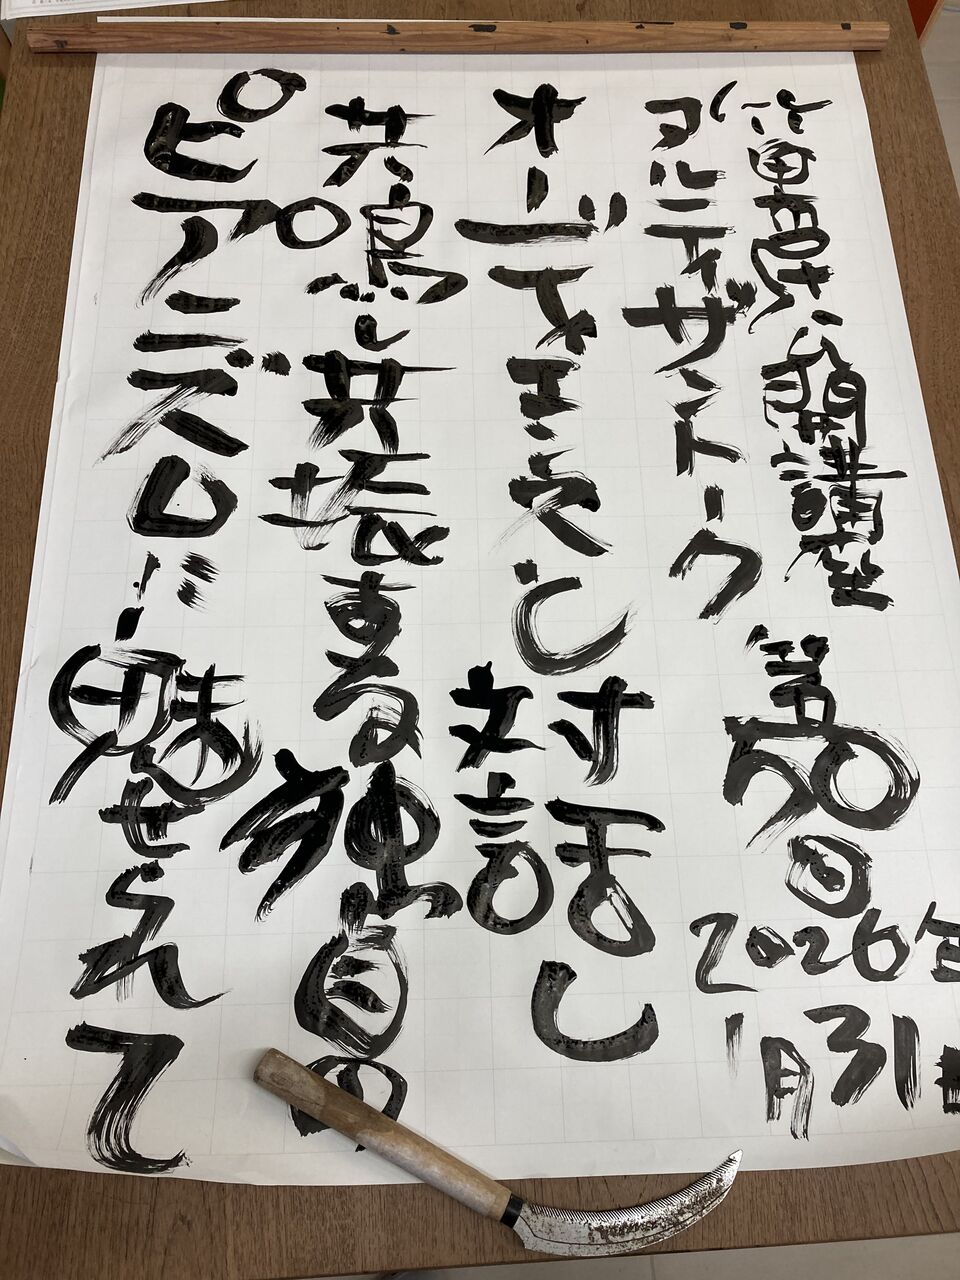 開講座 第50回
2026年
1月31日
アルティザントーク
オーディエンスと対話し
共鳴し共振する独自の
ピアニズムに魅せられて